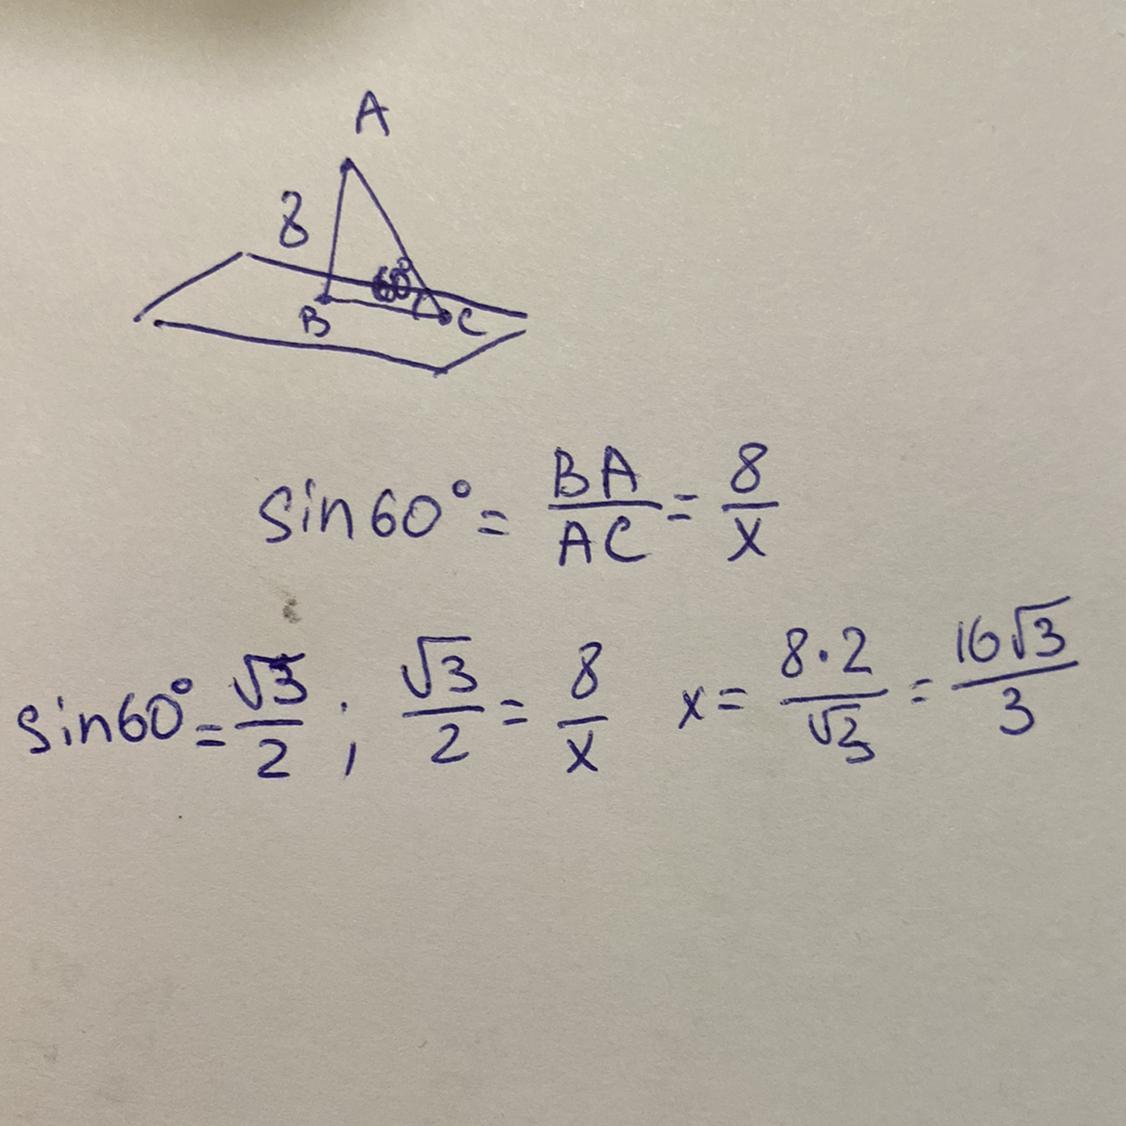 A
8
60°
B
C
sin60° = BA/AC = 8/x
sin60° = √3/2 ; √3/2 = 8/x x = 8·2/√3 = 16√3/3